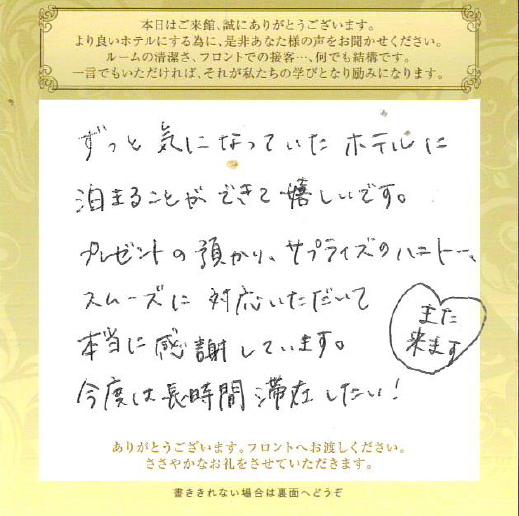 本日はご来館、誠にありがとうございます。
より良いホテルにする為に、是非あなた様の声をお聞かせください。
ルームの清潔さ、フロントでの接客…、何でも結構です。
一言でもいただければ、それが私たちの学びとなり励みになります。
ずっと気になっていたホテルに
泊まることができて嬉しいです。
プレゼントの預かり、サプライズのハニトー、
スムーズに対応いただいて
本当に感謝しています。
今度は長時間滞在したい！
また
来ます
ありがとうございます。フロントへお渡しください。
ささやかなお礼をさせていただきます。
書ききれない場合は裏面へどうぞ